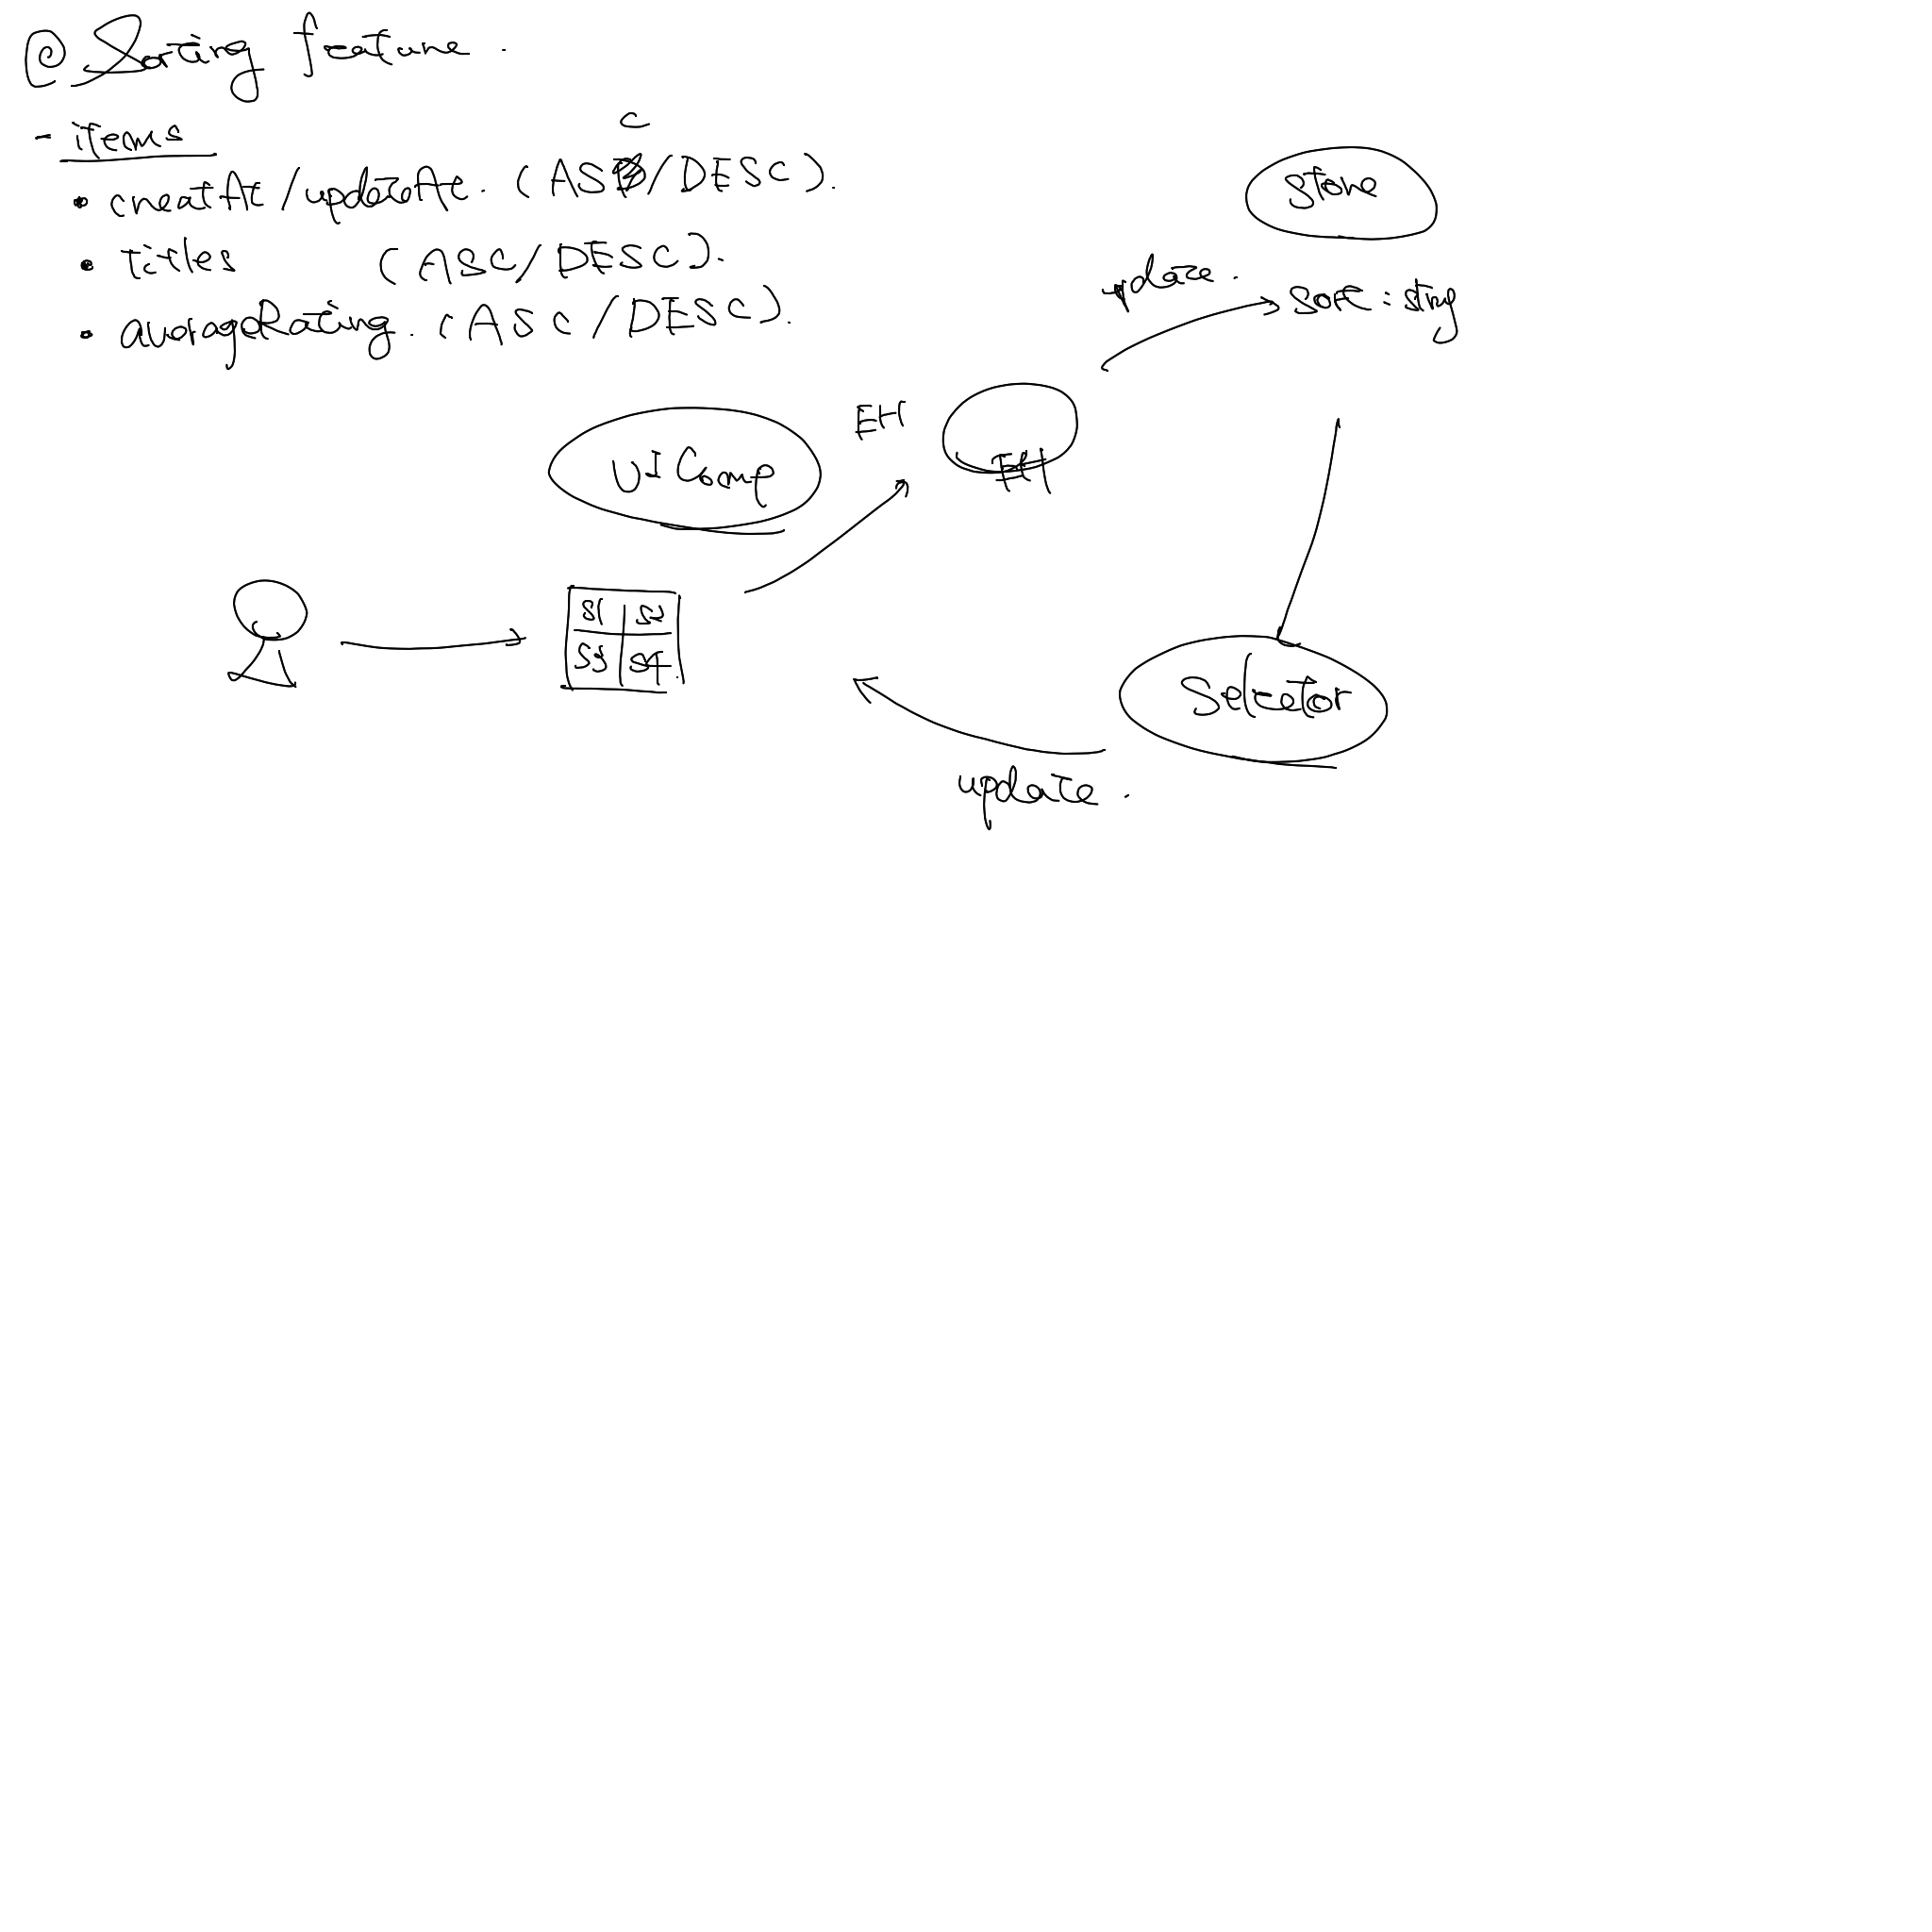 @ Sorting feature.
- items
• creatAt / updateAt. (ASC/DESC).
• titles (ASC/DESC).
• averageRating. (ASC/DESC).
Store
update.
Sort : string
EH
UI Comp
EH
S1 S2
S3 S4
Selector
update.